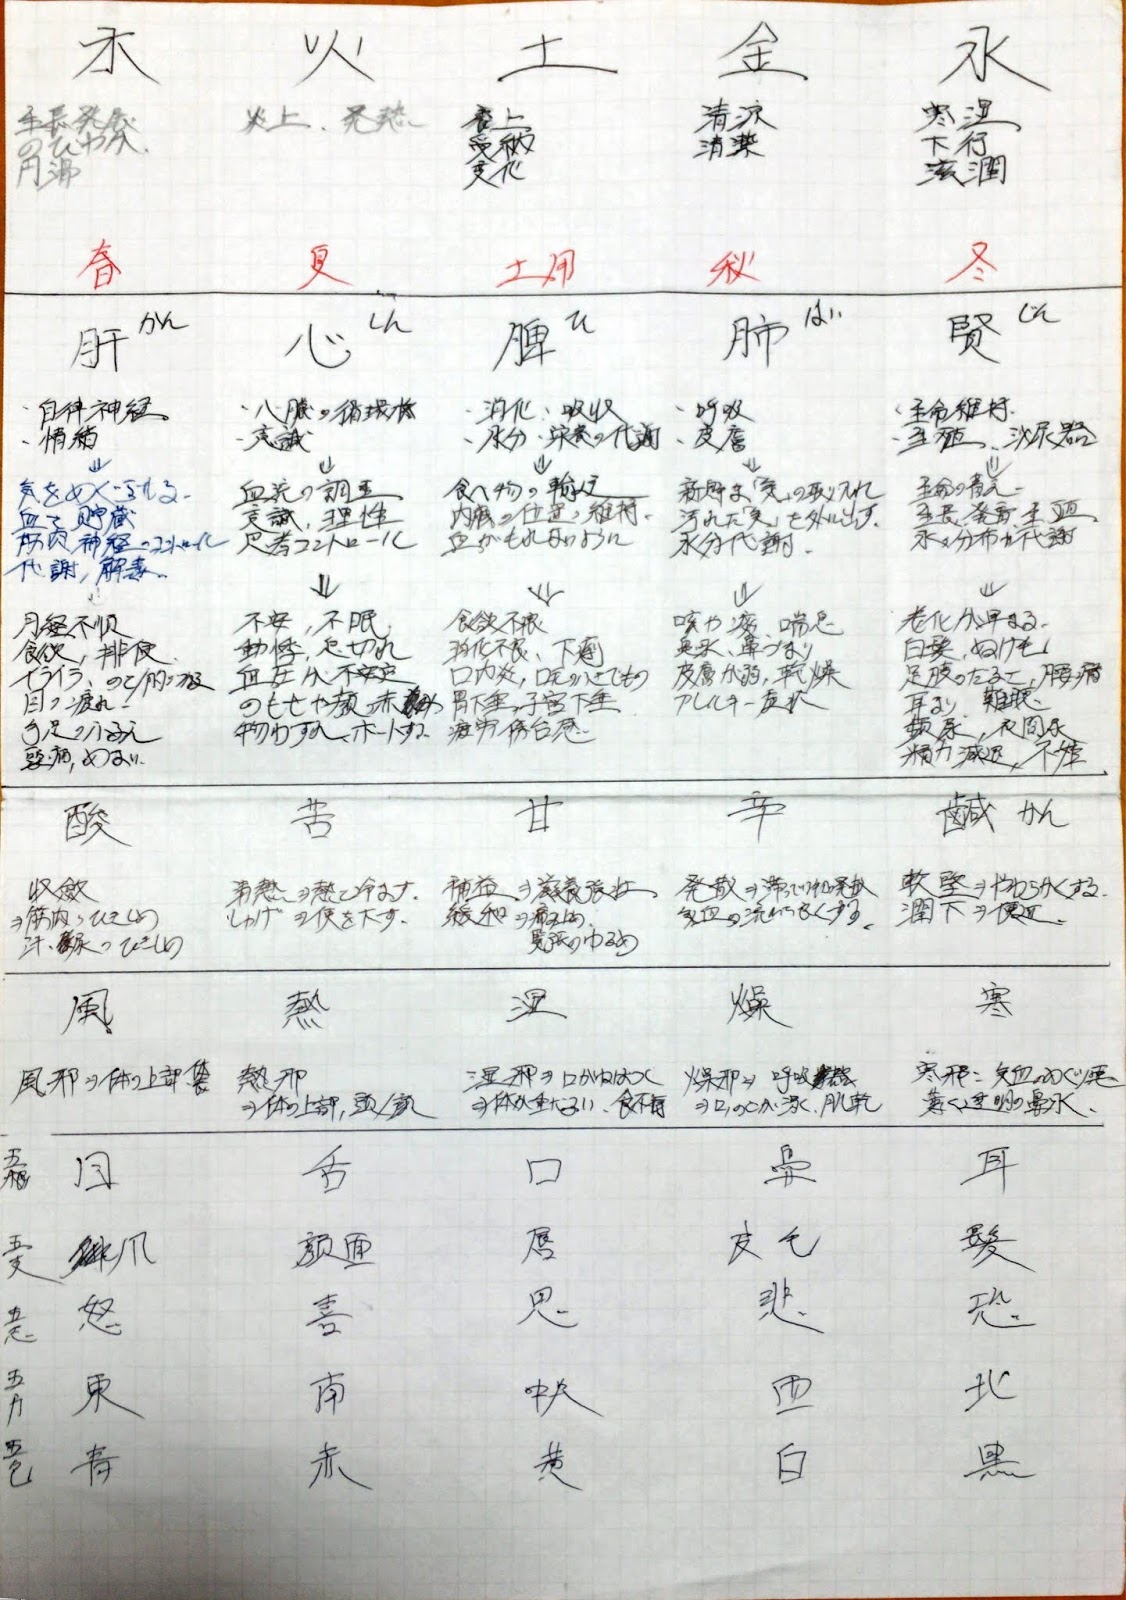 木 火 土 金 水
生長発展 炎上、発熱 受納 清涼 寒湿
のびやか 変化 清潔 下行
円滑 滋潤
春 夏 土用 秋 冬
肝 かん 心 しん 脾 ひ 肺 はい 賢 じん
・自律神経 ・意識 ・消化、吸収 ・呼吸 ・生命維持
・情緒 ・水分・栄養の代謝 ・皮膚 ・生殖、泌尿器
⇓ ⇓ ⇓ ⇓ ⇓
気をめぐらせる 血流の調整 食べ物の輸送 新鮮な「気」の取り入れ
血を貯蔵 意識、理性 内臓の位置の維持 汚れた「気」を外に出す。 生長、発育、生殖
筋肉、神経のコントロール 思考コントロール 血がもれないように 水分代謝 水の分布が代謝
代謝、解毒
⇓ ⇓ ⇓ ⇓
月経不順 不安、不眠 食欲不振 咳や痰、喘息 老化が早まる
食欲、排便 動悸、息切れ 消化不良、下痢 鼻水、鼻づまり 白髪、ぬけ毛
血圧が不安定 口内炎、口元のふきでもの 皮膚が弱、乾燥 足腰のだるさ、腰痛
目の疲れ 胃下垂、子宮下垂 アレルギー 耳なり 難聴
手足のふるえ 物わすれ、ボーとする 疲労倦怠感 頻尿、夜間尿
頭痛、めまい 精力減退、不妊
酸 苦 甘 辛 鹹 かん
収斂 清熱⇒熱を冷ます 補益⇒滋養強壮 発散⇒ 軟堅⇒やわらかくする
⇒筋肉のひきしめ しゃげ⇒便を下す 緩和⇒痛み止め 気血の流れをよくする 潤下⇒便通
汗、尿のひきしめ 緊張のゆるめ
風 熱 湿 燥 寒
風邪⇒体の上部 熱邪 湿邪⇒口がねばつく 燥邪⇒呼吸器 寒邪:気血のめぐり悪
⇒体の上部、頭/顔 ⇒体が重だるい、食不振 ⇒口、のどが渇く、肌乾 薄く透明の鼻水
目 舌 口 鼻 耳
五支 爪 顔面 唇 皮毛 髪
五志 怒 喜 思 悲 恐
五方 東 南 中央 西 北
五色 青 赤 黄 白 黒